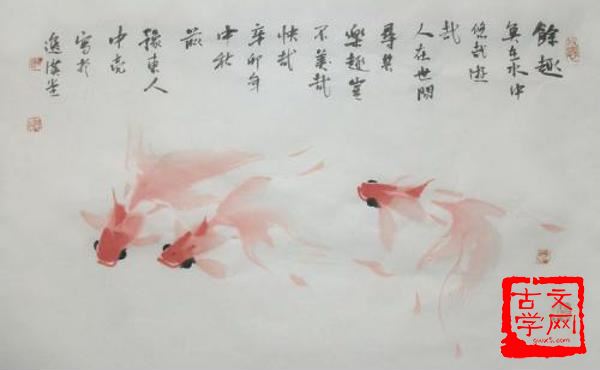 餘趣
魚在水中
悠哉遊
哉
人在世間
尋其
樂趣豈
不美哉
快哉
辛卯年
中秋
前
豫東人
中亮
寫於
古文
学网